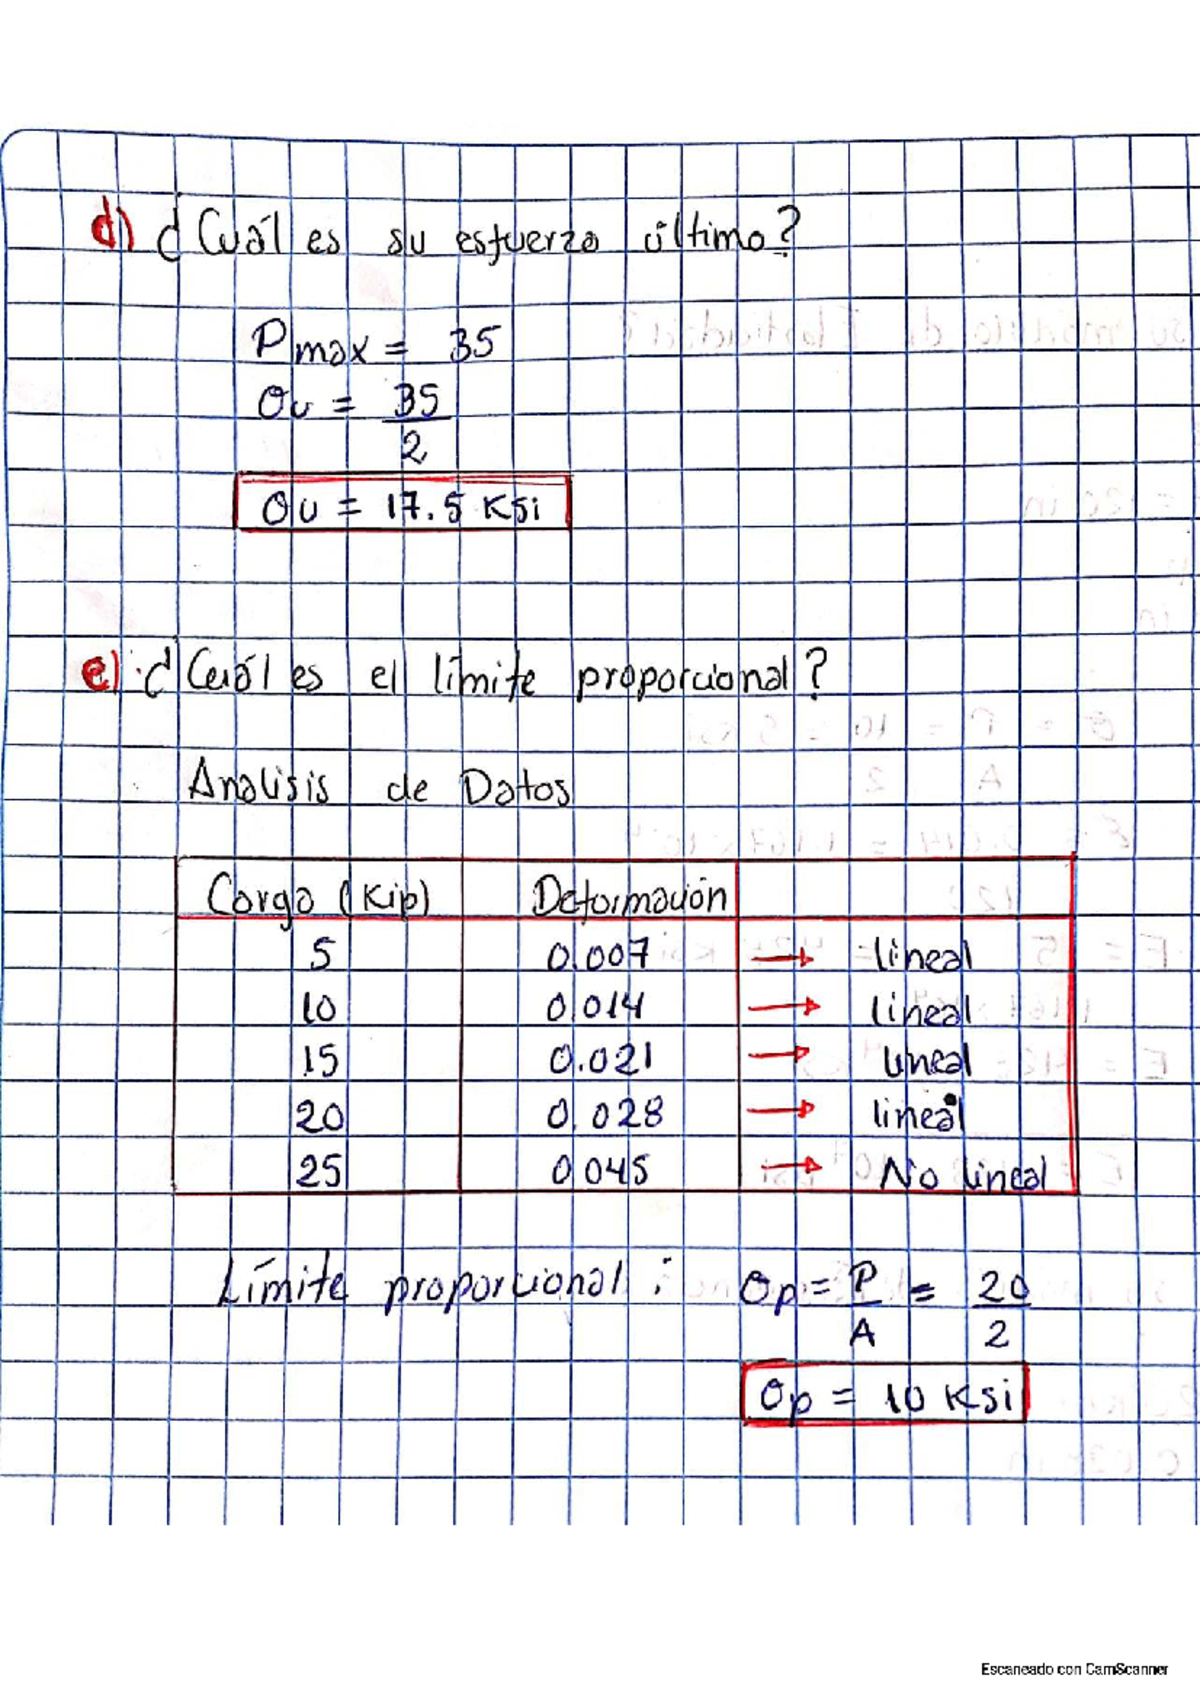 d) ¿Cuál es su esfuerzo último?
Pmax = 35
σu = 35
2
σu = 17.5 Ksi
e) ¿Cuál es el límite proporcional?
Analisis de Datos
Carga (Kip) Deformación
5 0.007 → lineal
10 0.014 → lineal
15 0.021 → lineal
20 0.028 → lineal
25 0.045 → No lineal
Límite proporcional: σp = P = 20
A 2
σp = 10 Ksi
Escaneado con CamScanner